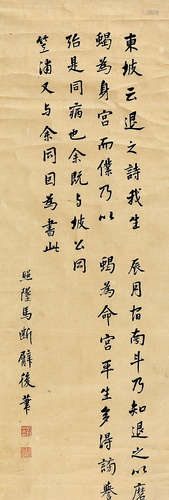 東坡云退之詩我生 辰月宿南斗乃知退之以磨
蝎為身宮而僕乃以 蝎為命宮平生多得謗譽
殆是同病也余既與坡公同
笠浦又與余同因為書此
照墜馬斷臂後筆